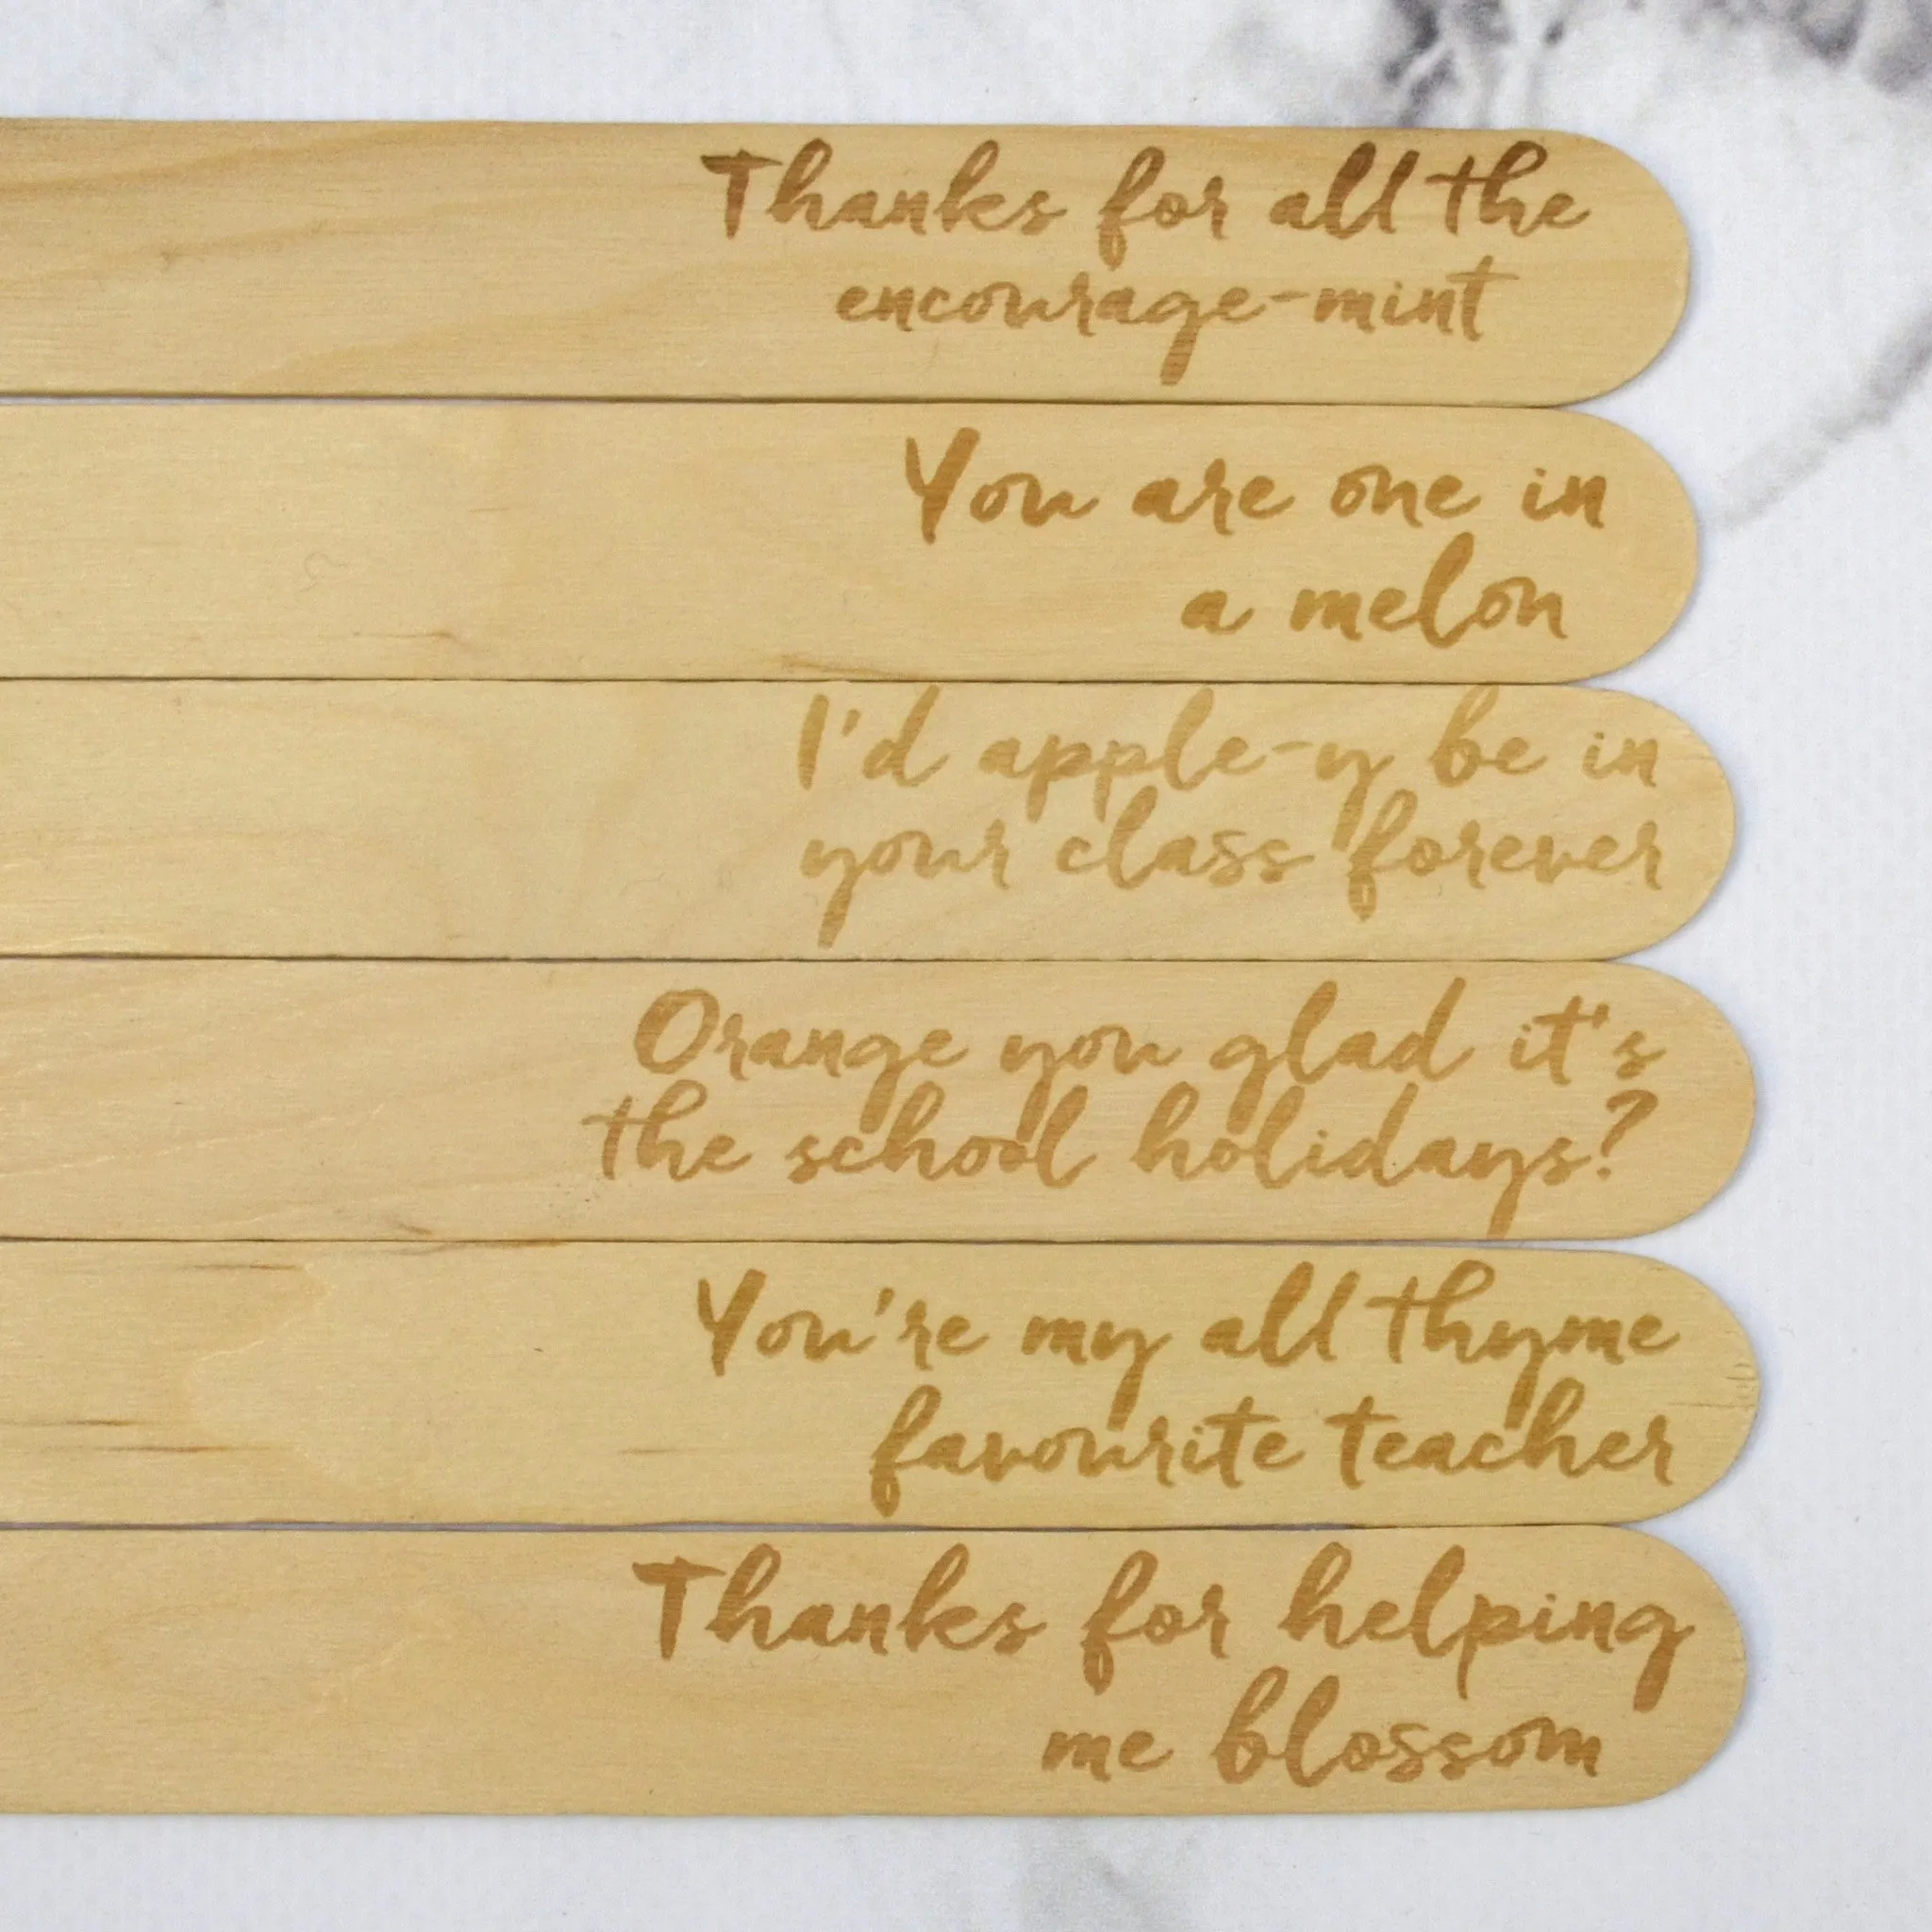 Thanks for all the
encourage-mint
You are one in
a melon
I'd apple-y be in
your class forever
Orange you glad it's
the school holidays?
You're my all thyme
favourite teacher
Thanks for helping
me blossom